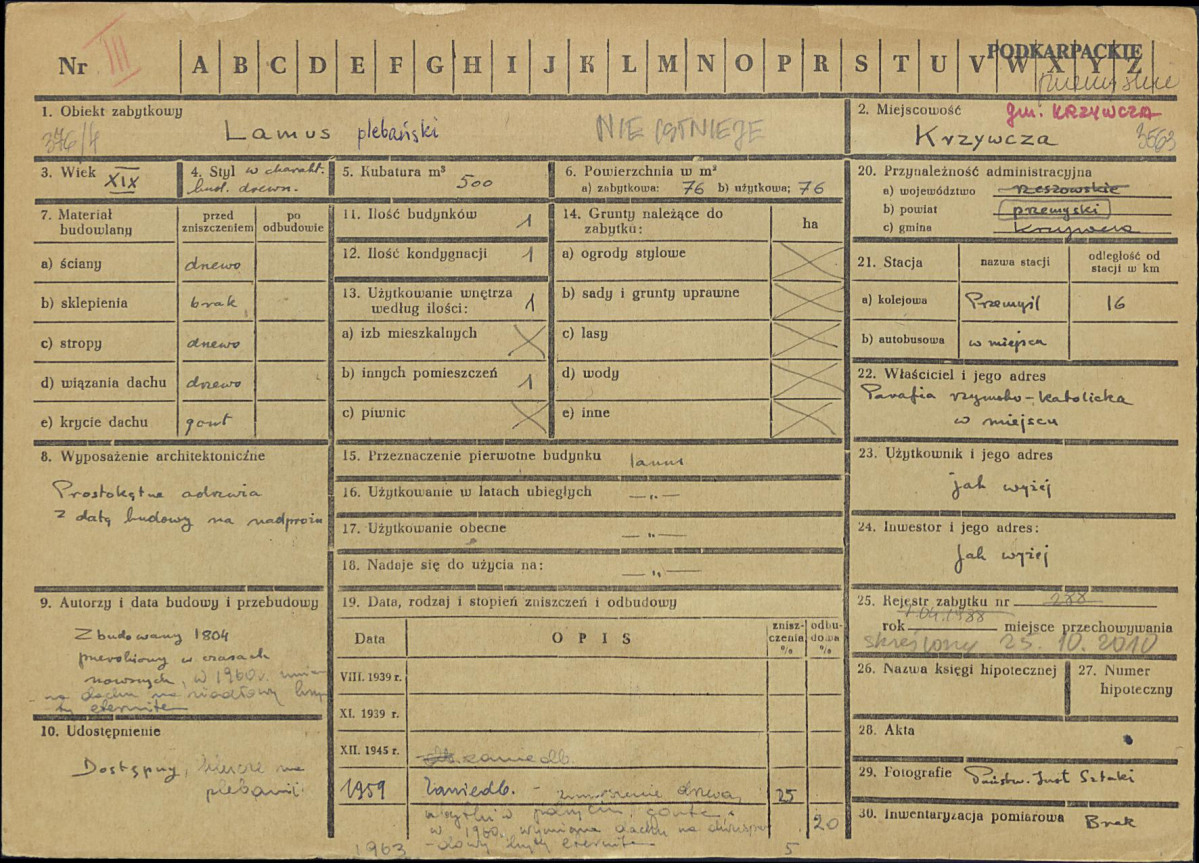 Nr III A B C D E F G H I J K L M N O P R S T U V W X Y Z
PODKARPACKIE
przemyskie
1. Obiekt zabytkowy
376/4
Lamus plebański
NIE ISTNIEJE
2. Miejscowość
gm. KRZYWCZA
Krzywcza
3563
3. Wiek XIX
4. Styl w charakt.
bud. drewn.
5. Kubatura m³ 500
6. Powierzchnia w m²
a) zabytkowa: 76 b) użytkowa; 76
20. Przynależność administracyjna
a) województwo rzeszowskie
b) powiat przemyski
c) gmina Krzywcza
7. Materiał budowlany
przed zniszczeniem
po odbudowie
a) ściany drewo
b) sklepienia brak
c) stropy drewo
d) wiązania dachu drzewo
e) krycie dachu gont
11. Ilość budynków 1
12. Ilość kondygnacji 1
13. Użytkowanie wnętrza
według ilości: 1
a) izb mieszkalnych
b) innych pomieszczeń 1
c) piwnic
14. Grunty należące do
zabytku:
ha
a) ogrody stylowe
b) sady i grunty uprawne
c) lasy
d) wody
e) inne
21. Stacja
nazwa stacji
odległość od
stacji w km
a) kolejowa Przemyśl 16
b) autobusowa w miejscu
22. Właściciel i jego adres
Parafia rzymsko-katolicka
w miejscu
8. Wyposażenie architektoniczne
Prostokątne odrzwia
z datą budowy na nadprożu
15. Przeznaczenie pierwotne budynku lamus
16. Użytkowanie w latach ubiegłych — „ —
17. Użytkowanie obecne — „ —
18. Nadaje się do użycia na: — „ —
23. Użytkownik i jego adres
jak wyżej
24. Inwestor i jego adres:
jak wyżej
9. Autorzy i data budowy i przebudowy
Zbudowany 1804
przerobiony w czasach
nowszych, w 1960 r.
na dachu na siodłowy kryty
eternitem
19. Data, rodzaj i stopień zniszczeń i odbudowy
Data
OPIS
zniszczenia %
odbudowa %
VIII. 1939 r.
XI. 1939 r.
XII. 1945 r. zaniedb.
1959 Zaniedb. - zmurszenie drzewa, 25
w 1960 r. wymiana dachu na dwuspa- 20
1963 -dowy kryty eternitem 5
25. Rejestr zabytku nr 288
rok 1988 miejsce przechowywania
skreślony 25. 10. 2010
26. Nazwa księgi hipotecznej
27. Numer
hipoteczny
10. Udostępnienie
Dostępny, klucze na
plebanii
28. Akta
29. Fotografie Państw. Inst Sztuki
30. Inwentaryzacja pomiarowa Brak